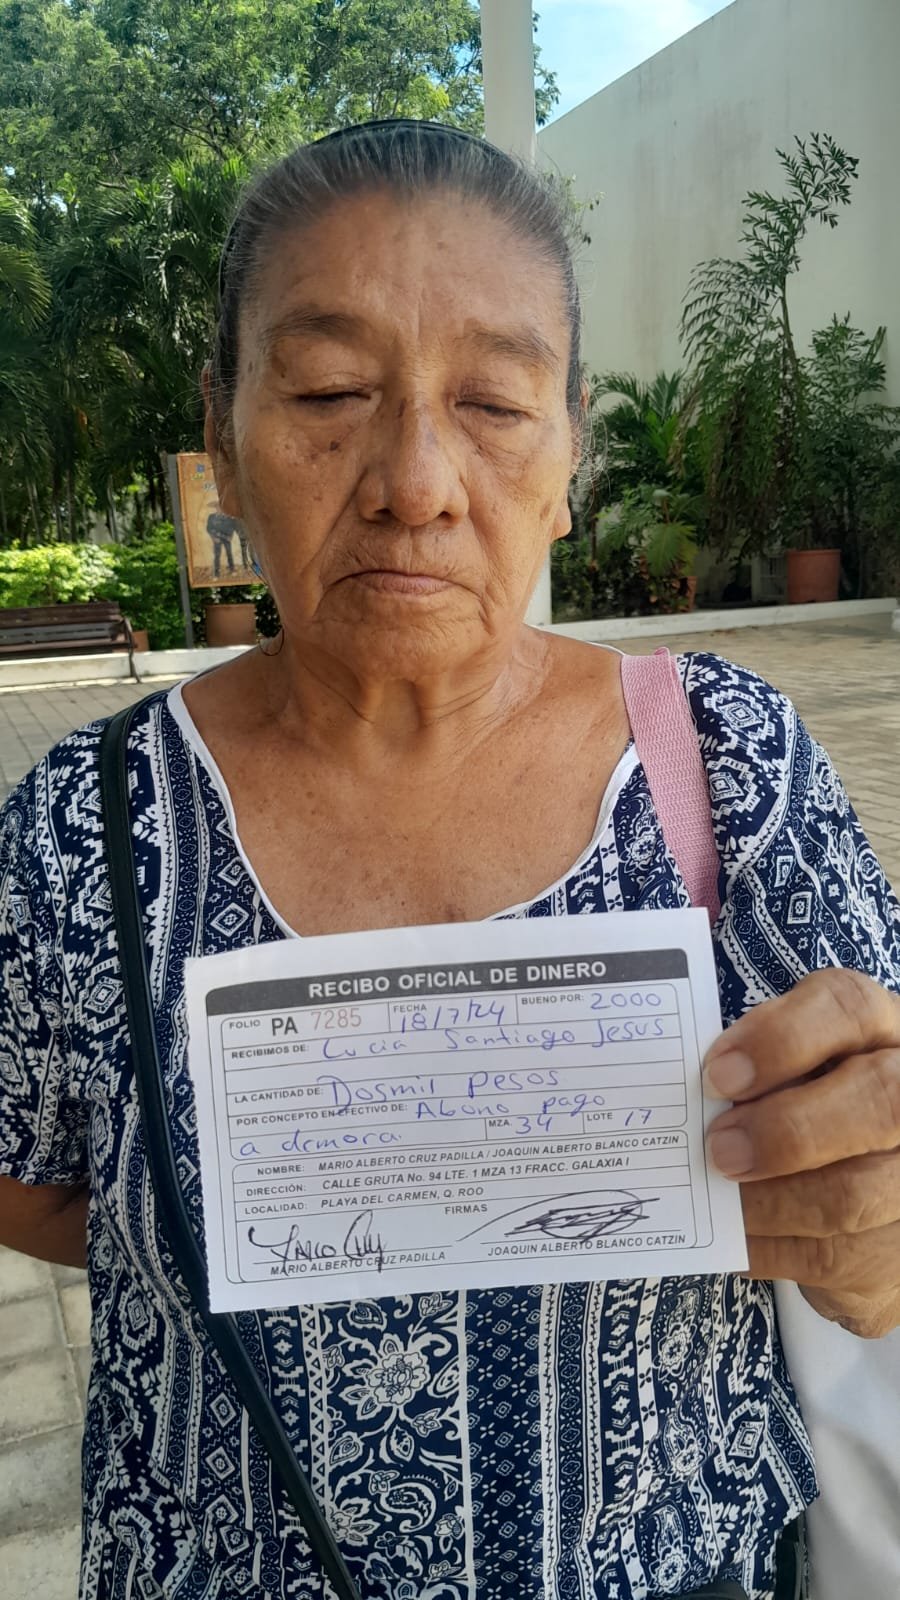 RECIBO OFICIAL DE DINERO
FOLIO PA 7285 FECHA 18/7/24 BUENO POR: 2000
RECIBIMOS DE: Lucia Santiago Jesus
LA CANTIDAD DE: Dosmil pesos
POR CONCEPTO EN EFECTIVO DE: Abono pago
a demora. MZA. 34 LOTE 17
NOMBRE: MARIO ALBERTO CRUZ PADILLA / JOAQUIN ALBERTO BLANCO CATZIN
DIRECCIÓN: CALLE GRUTA No. 94 LTE. 1 MZA 13 FRACC. GALAXIA I
LOCALIDAD: PLAYA DEL CARMEN, Q. ROO
FIRMAS
MARIO ALBERTO CRUZ PADILLA JOAQUIN ALBERTO BLANCO CATZIN